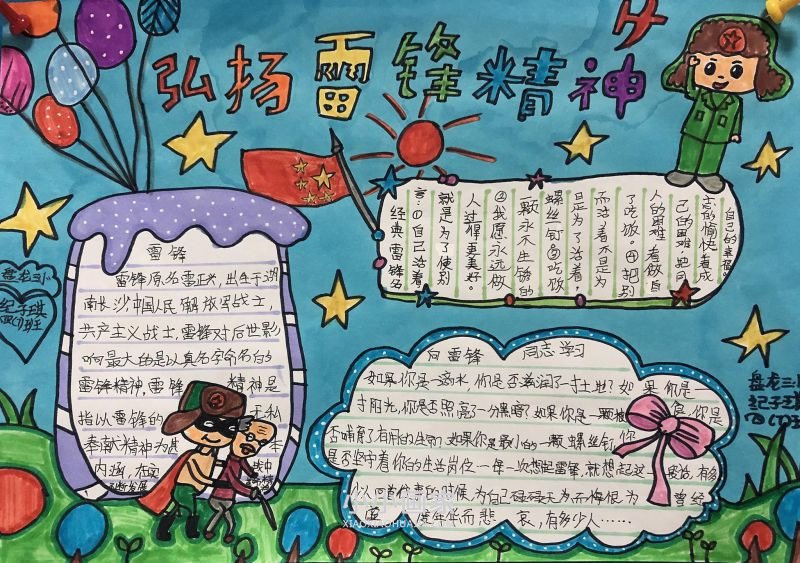 弘扬雷锋精神
雷锋
雷锋原名雷正兴,出生于湖
南长沙,中国人民解放军战士,
共产主义战士,雷锋对后世影
响最大的是以其名字命名的
雷锋精神,雷锋 精神是
指以雷锋的 无私
奉献精神为基 本
内涵,在实
经典雷锋名
言:①自己活着,
就是为了使别
人过得更美好。
②我愿永远做
一颗永不生锈的
螺丝钉③吃饭
是为了活着,
而活着不是为
了吃饭。④把别
人的困难看做自
己的困难把同
志的愉快看成
自己的幸福。
向雷锋 同志学习
如果你是一滴水,你是否滋润了一寸土地?如果你是
一寸阳光,你是否照亮了一分黑暗?如果你是一颗粮食,你是
否哺育了有用的生命?如果你是最小的一颗螺丝钉,你
是否坚守着你的生活岗位一年一次想起雷锋,就想起这 有多
少人 的时候,为自己碌碌无为而悔恨,为曾经
虚度年华而悲哀,有多少人……
盘龙三小
纪子琪
四(1)班
盘龙三小
纪子琪
四(1)班